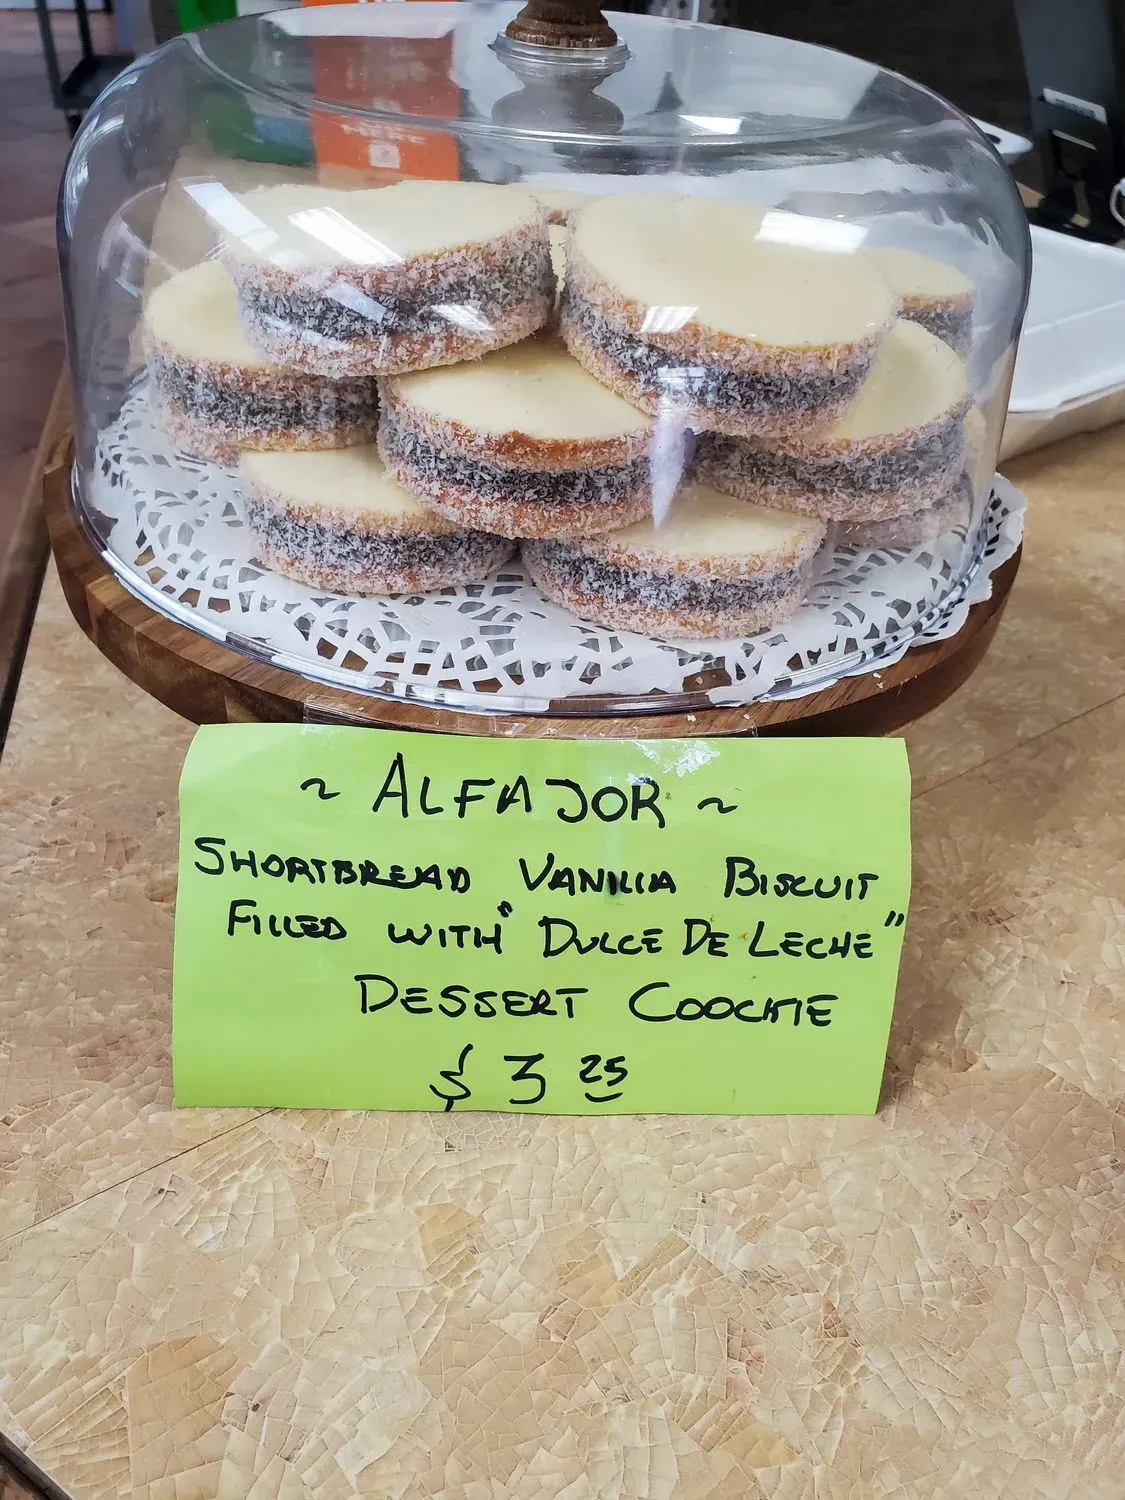 ~ ALFAJOR ~
SHORTBREAD VANILLA BISCUIT
FILLED WITH "DULCE DE LECHE"
DESSERT COOCKIE
$ 3 25